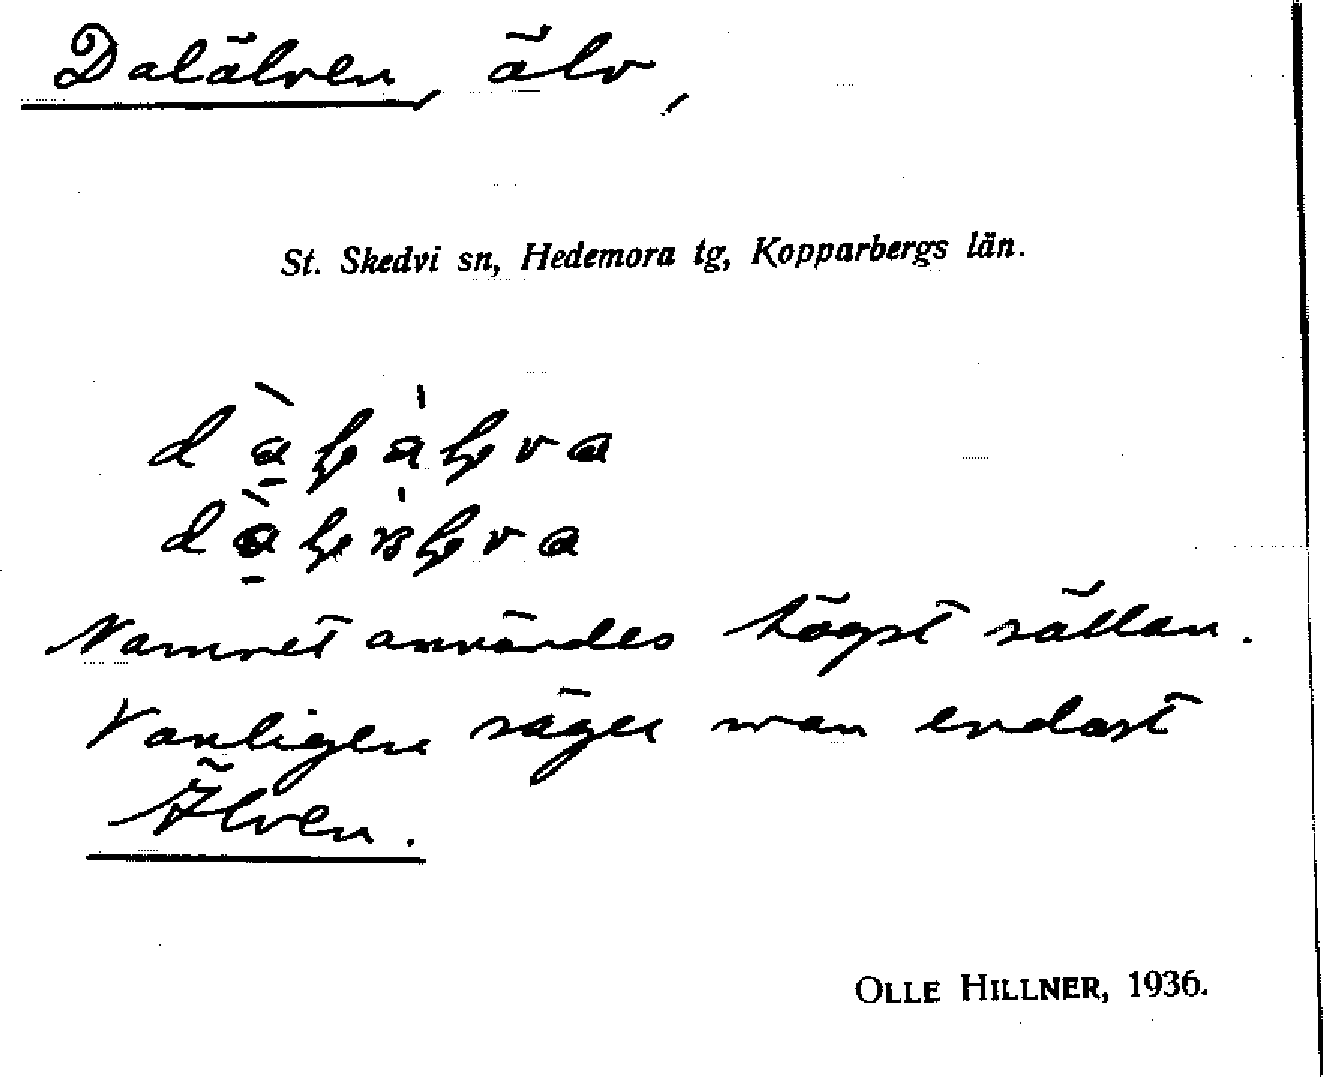 Dalälven, älv,
St. Skedvi sn, Hedemora tg, Kopparbergs län.
Namnet användes högst sällan.
Vanligen säger man endast
Älven.
OLLE HILLNER, 1936.